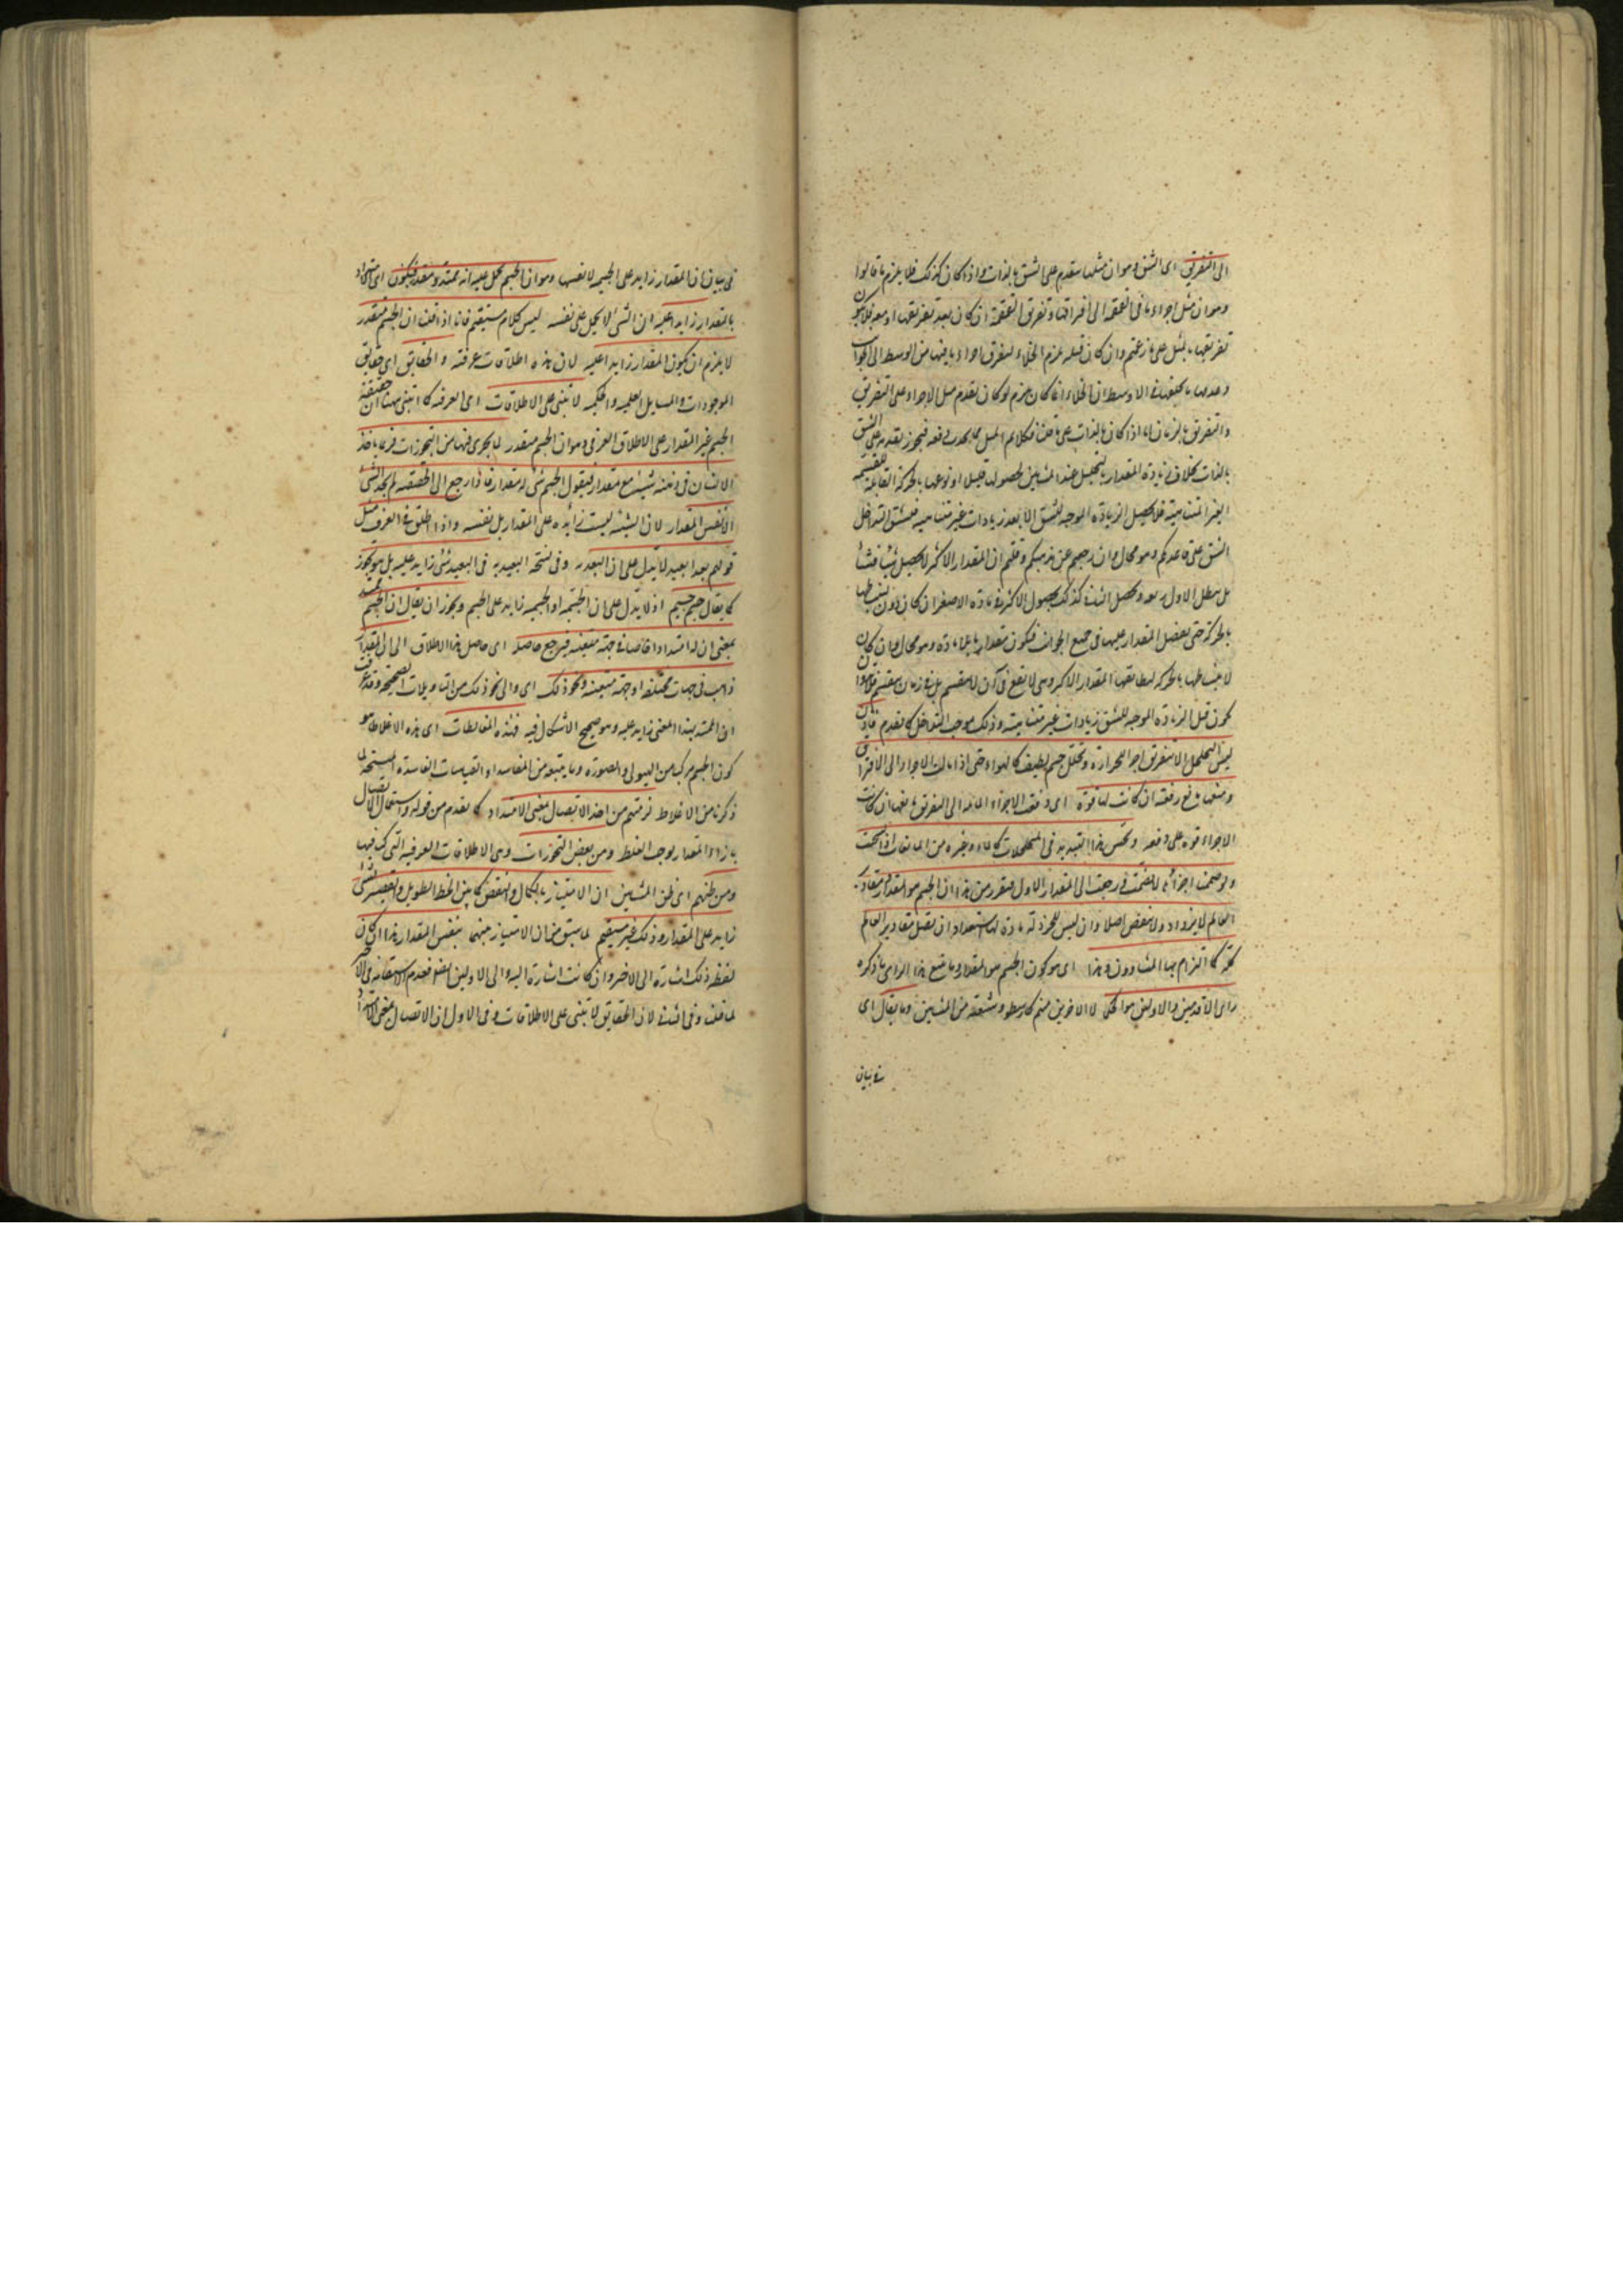 الى التفريق اى الشق وهو ان مثلها يتقدم على الشق بالذات واذا كان كذلك فلا يلزم ما قالوا
وهو ان مثل اجزاء ما فى القمقمة الى افتراقها وتفريق القمقمة ان كان بعد تفريقها او معه فلا يكون
تفريقها بالميل على ما زعمتم وان كان قبله يلزم الخلاء لتفرق اجزاء ما فيها من الوسط الى الجوانب
وعدم ما يخلفها فى الاوسط ان الخلاء انما كان يلزم لو كان تقدم ميل الاجزاء على التفريق
والتفريق بالزمان اما اذا كان بالذات على ما قلنا فكلا فيجوز تقدمه على الشق
بالذات بخلاف زيادة المقدار بالتخلخل عند المشائين لحصولها قليلا او نوعها بالحركة القابلة للقسمة
الغير المتناهية فلا يحصل الزيادة الموجبة للشق الا بعد زيادات غير متناهية فيسبق التداخل
الشق على قاعدتكم وهو محال وان رجعتم عن مذهبكم وقلتم ان المقدار الاكبر لا يحصل شيئا فشيئا
بل يبطل الاول ويحصل الثانى كذلك بحصول الاكبر فى مادة الاصغر ان كان دون انبساطها
بالحركة حتى يفضل المقدار عليها فى جميع الجوانب فيكون مقدار بلا مادة وهو محال وان كان
لانبساطها بالحركة ليطابقها المقدار الاكبر وهى لا تقع فى آن لا ينقسم بل فى زمان منقسم
يكون قبل الزيادة الموجبة للشق زيادات غير متناهية وذلك موجب التداخل كما تقدم فاذن
ليس التخلخل الا بتفريق اجزاء للحرارة وتخلل جسم لطيف كالهواء حتى اذا مالت الاجزاء الى الافتراق
ومنعها مانع دفعته ان كانت لها قوة اى دفعت الاجزاء المائلة الى التفريق مانعها ان كانت
الاجزاء قوة على دفعه ويحس هذا التبديد فى المتخلخلات كالماء وغيره من المائعات اذا سخنت
ولو ضمت اجزاؤه لانضمت ورجعت الى المقدار الاول فتقرر من هذا ان الجسم هو المقدار ومقادير
العالم لا يزداد ولا ينقص اصلا وان ليس للخردلة مادة لها استعداد ان تقبل مقادير العالم
كله كما التزم بها المشاؤون وهذا اى هو كون الجسم هو المقدار وما يتبع هذا الراى ما ذكره
راى الاقدمين والاولين هو الحق لا الاخرين منهم كارسطو وشيعته من المشائين وما يقال اى
فى بيان
فى بيان ان المقدار زايد على الجسمية لا نفسها وهو ان الجسم يحمل عليه انه ممتد ومتقدر فيكون اى
بالمقدار زايدا عليه اذ الشئ لا يحمل على نفسه ليس كلام مستقيم فانا اذا قلنا ان الجسم متقدر
لا يلزم ان يكون المقدار زايدا عليه لان هذه اطلاقات عرفية و الحقايق اى حقايق
الموجودات والمسايل العلمية والحكمية لا تبتنى على الاطلاقات اى العرفية كما ابتنى ههنا ان حقيقة
الجسم غير المقدار على الاطلاق العرفى وهو ان الجسم متقدر لما يجرى فيها من التجوزات فربما ياخذ
الانسان فى ذهنه شيئية مع مقدار فيقول الجسم شئ له مقدار فاذا رجع الى الحقيقة لم يجد الشئ
الا نفس المقدار لان الشيئية ليست زائدة على المقدار بل نفسه واذا اطلق فى العرف مثل
قولهم بعد بعيد لا يدل على ان البعد وفى نسخة البعيدية فى البعيد شئ زايد عليه بل هو تجوز
كما يقال جسم جسيم اذ لا يدل على ان الجسمية زايد على الجسم ويجوز ان يقال ان الجسم
بمعنى ان له امتدادا خاصا فى جهة متعينة فيرجع حاصل اى حاصل هذا الاطلاق الى ان المقدار
ذاهب فى جهات مختلفة او جهة متعينة ونحو ذلك اى والى نحو ذلك من التاويلات الصحيحة وقد عرفت
ان الممتد بهذا المعنى زايد عليه وهو صحيح الاشكال فيه فهذه المغالطات اى هذه الاغلاط
كون الجسم مركبا من الهيولى والصورة وما يتبعه من المفاسد او القياسات الفاسدة
ذكرنا من الاغلاط لزمتهم من اخذ الاتصال بمعنى الامتداد كما تقدم من قوله واستعمال الاتصال
بازاء المقدار يوجب الغلط ومن بعض التجوزات وهى الاطلاقات العرفية التى
ومن ظنهم اى ظن المشائين ان الامتياز بالكمال والنقص كما بين الخط الطويل والقصير بشئ
زايد على المقدار وذلك غير مستقيم لما سبق من ان الامتياز منهما بنفس المقدار هذا ان كان
لفظة ذلك اشارة الى الاخير وان كانت اشارة اليه والى الاولين ايضا فعدم الاستقامة فى الاخير
لما قلنا وفى الثانى لان الحقايق لا تبتنى على الاطلاقات وفى الاول ان الاتصال بمعنى الامتداد